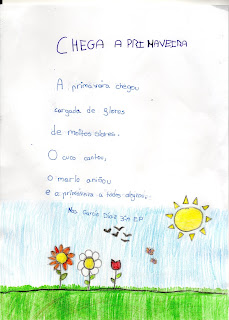 CHEGA A PRIMAVEIRA
A primaveira chegou
cargada de flores
de moitos olores.
O cuco cantou,
o merlo aniñou
e a primaveira a todos alegrou.
García Díaz 3º EP